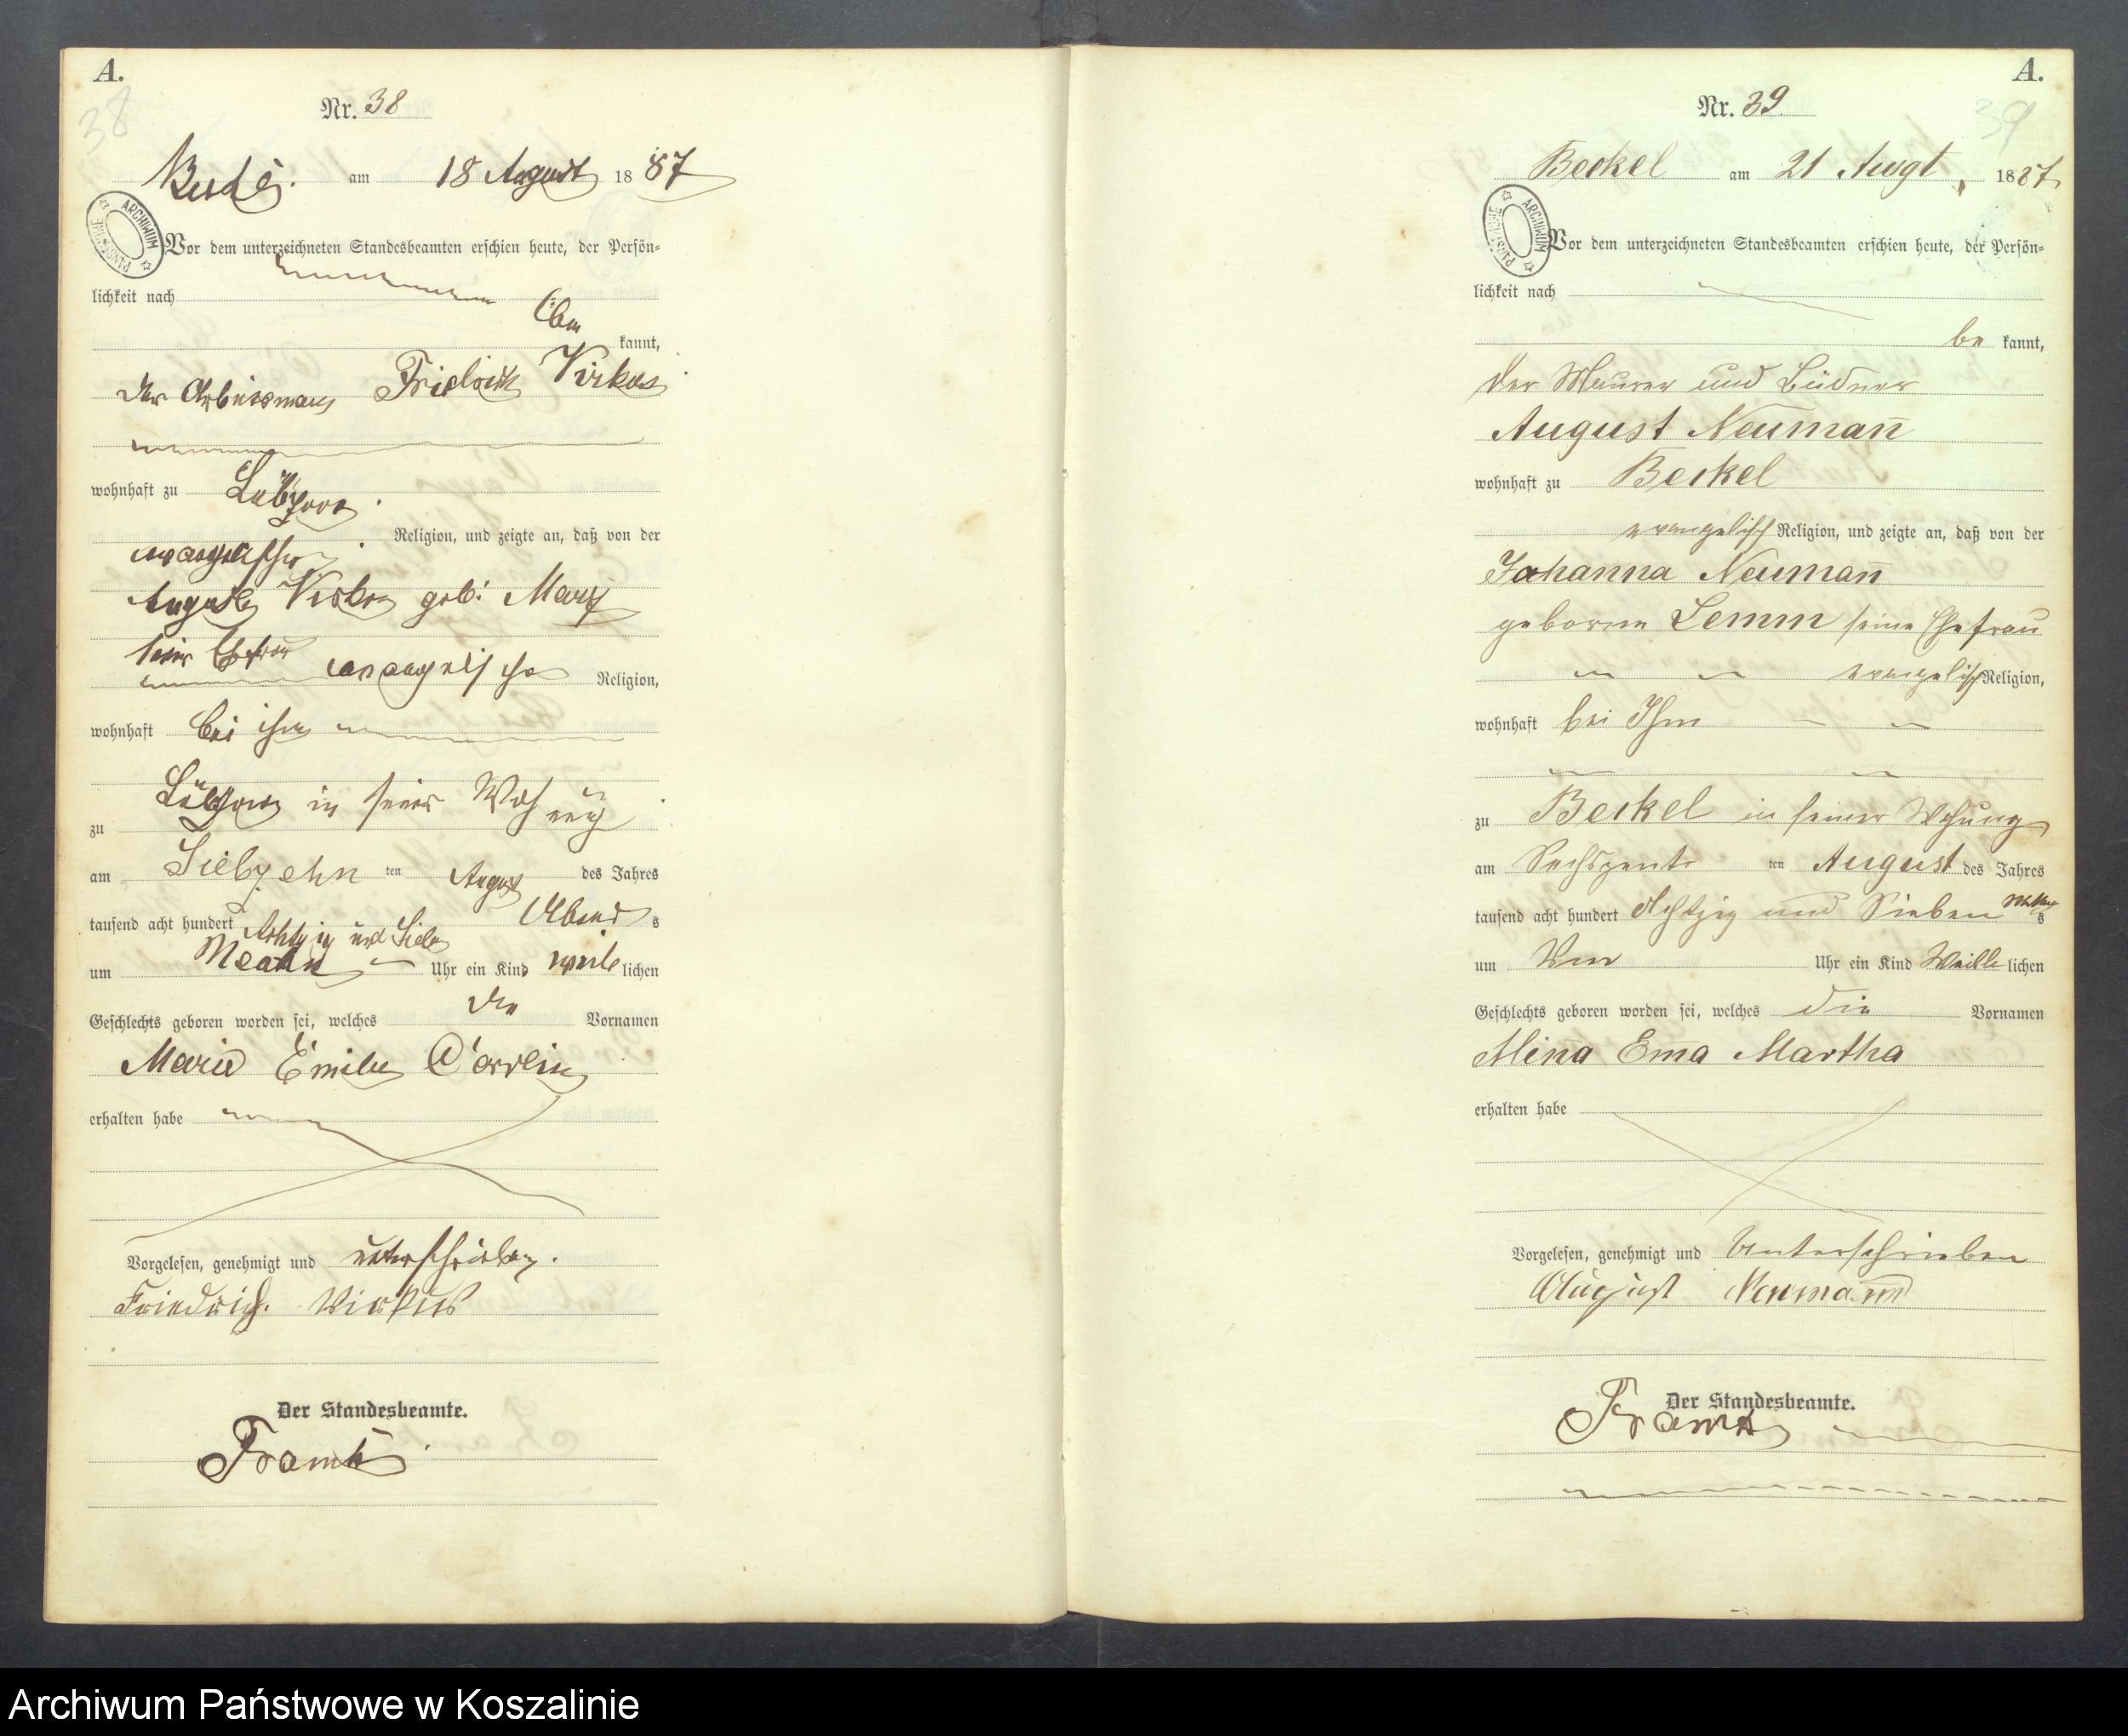 A.
38
Nr. 38
am 18 August 1887
ARCHIWUM PAŃSTWOWE
Vor dem unterzeichneten Standesbeamten erschien heute, der Persön-
lichkeit nach
kannt,
der Friedrich Virkus
wohnhaft zu Lübzow
Religion, und zeigte an, daß von der
evangelischer
Auguste Virkus geb:
seiner Ehefrau evangelischer Religion,
wohnhaft bei ihm
zu Lübzow in seiner Wohnung
am Siebzehn ten August des Jahres
tausend acht hundert Achtzig und Sieben Abends
um Uhr ein Kind weiblichen
Geschlechts geboren worden sei, welches die Vornamen
Marie Emilie
erhalten habe
Vorgelesen, genehmigt und unterschrieben.
Friedrich. Virkus
Der Standesbeamte.
A.
39
Nr. 39.
Beckel am 21 Augt. 1887
ARCHIWUM PAŃSTWOWE
Vor dem unterzeichneten Standesbeamten erschien heute, der Persön-
lichkeit nach
be kannt,
der Maurer und Büdner
August Neuman̄
wohnhaft zu Beckel
evangelisch Religion, und zeigte an, daß von der
Johanna Neuman̄
geborne Lemm seine Ehefrau
evangelisch Religion,
wohnhaft bei Ihm
zu Beckel in seiner Wohung
am Sechszente ten August des Jahres
tausend acht hundert Achtzig und Sieben
um Uhr ein Kind Weiblichen
Geschlechts geboren worden sei, welches die Vornamen
Mina Ema Martha
erhalten habe
Vorgelesen, genehmigt und Unterschrieben
August Neumann
Der Standesbeamte.
Archiwum Państwowe w Koszalinie